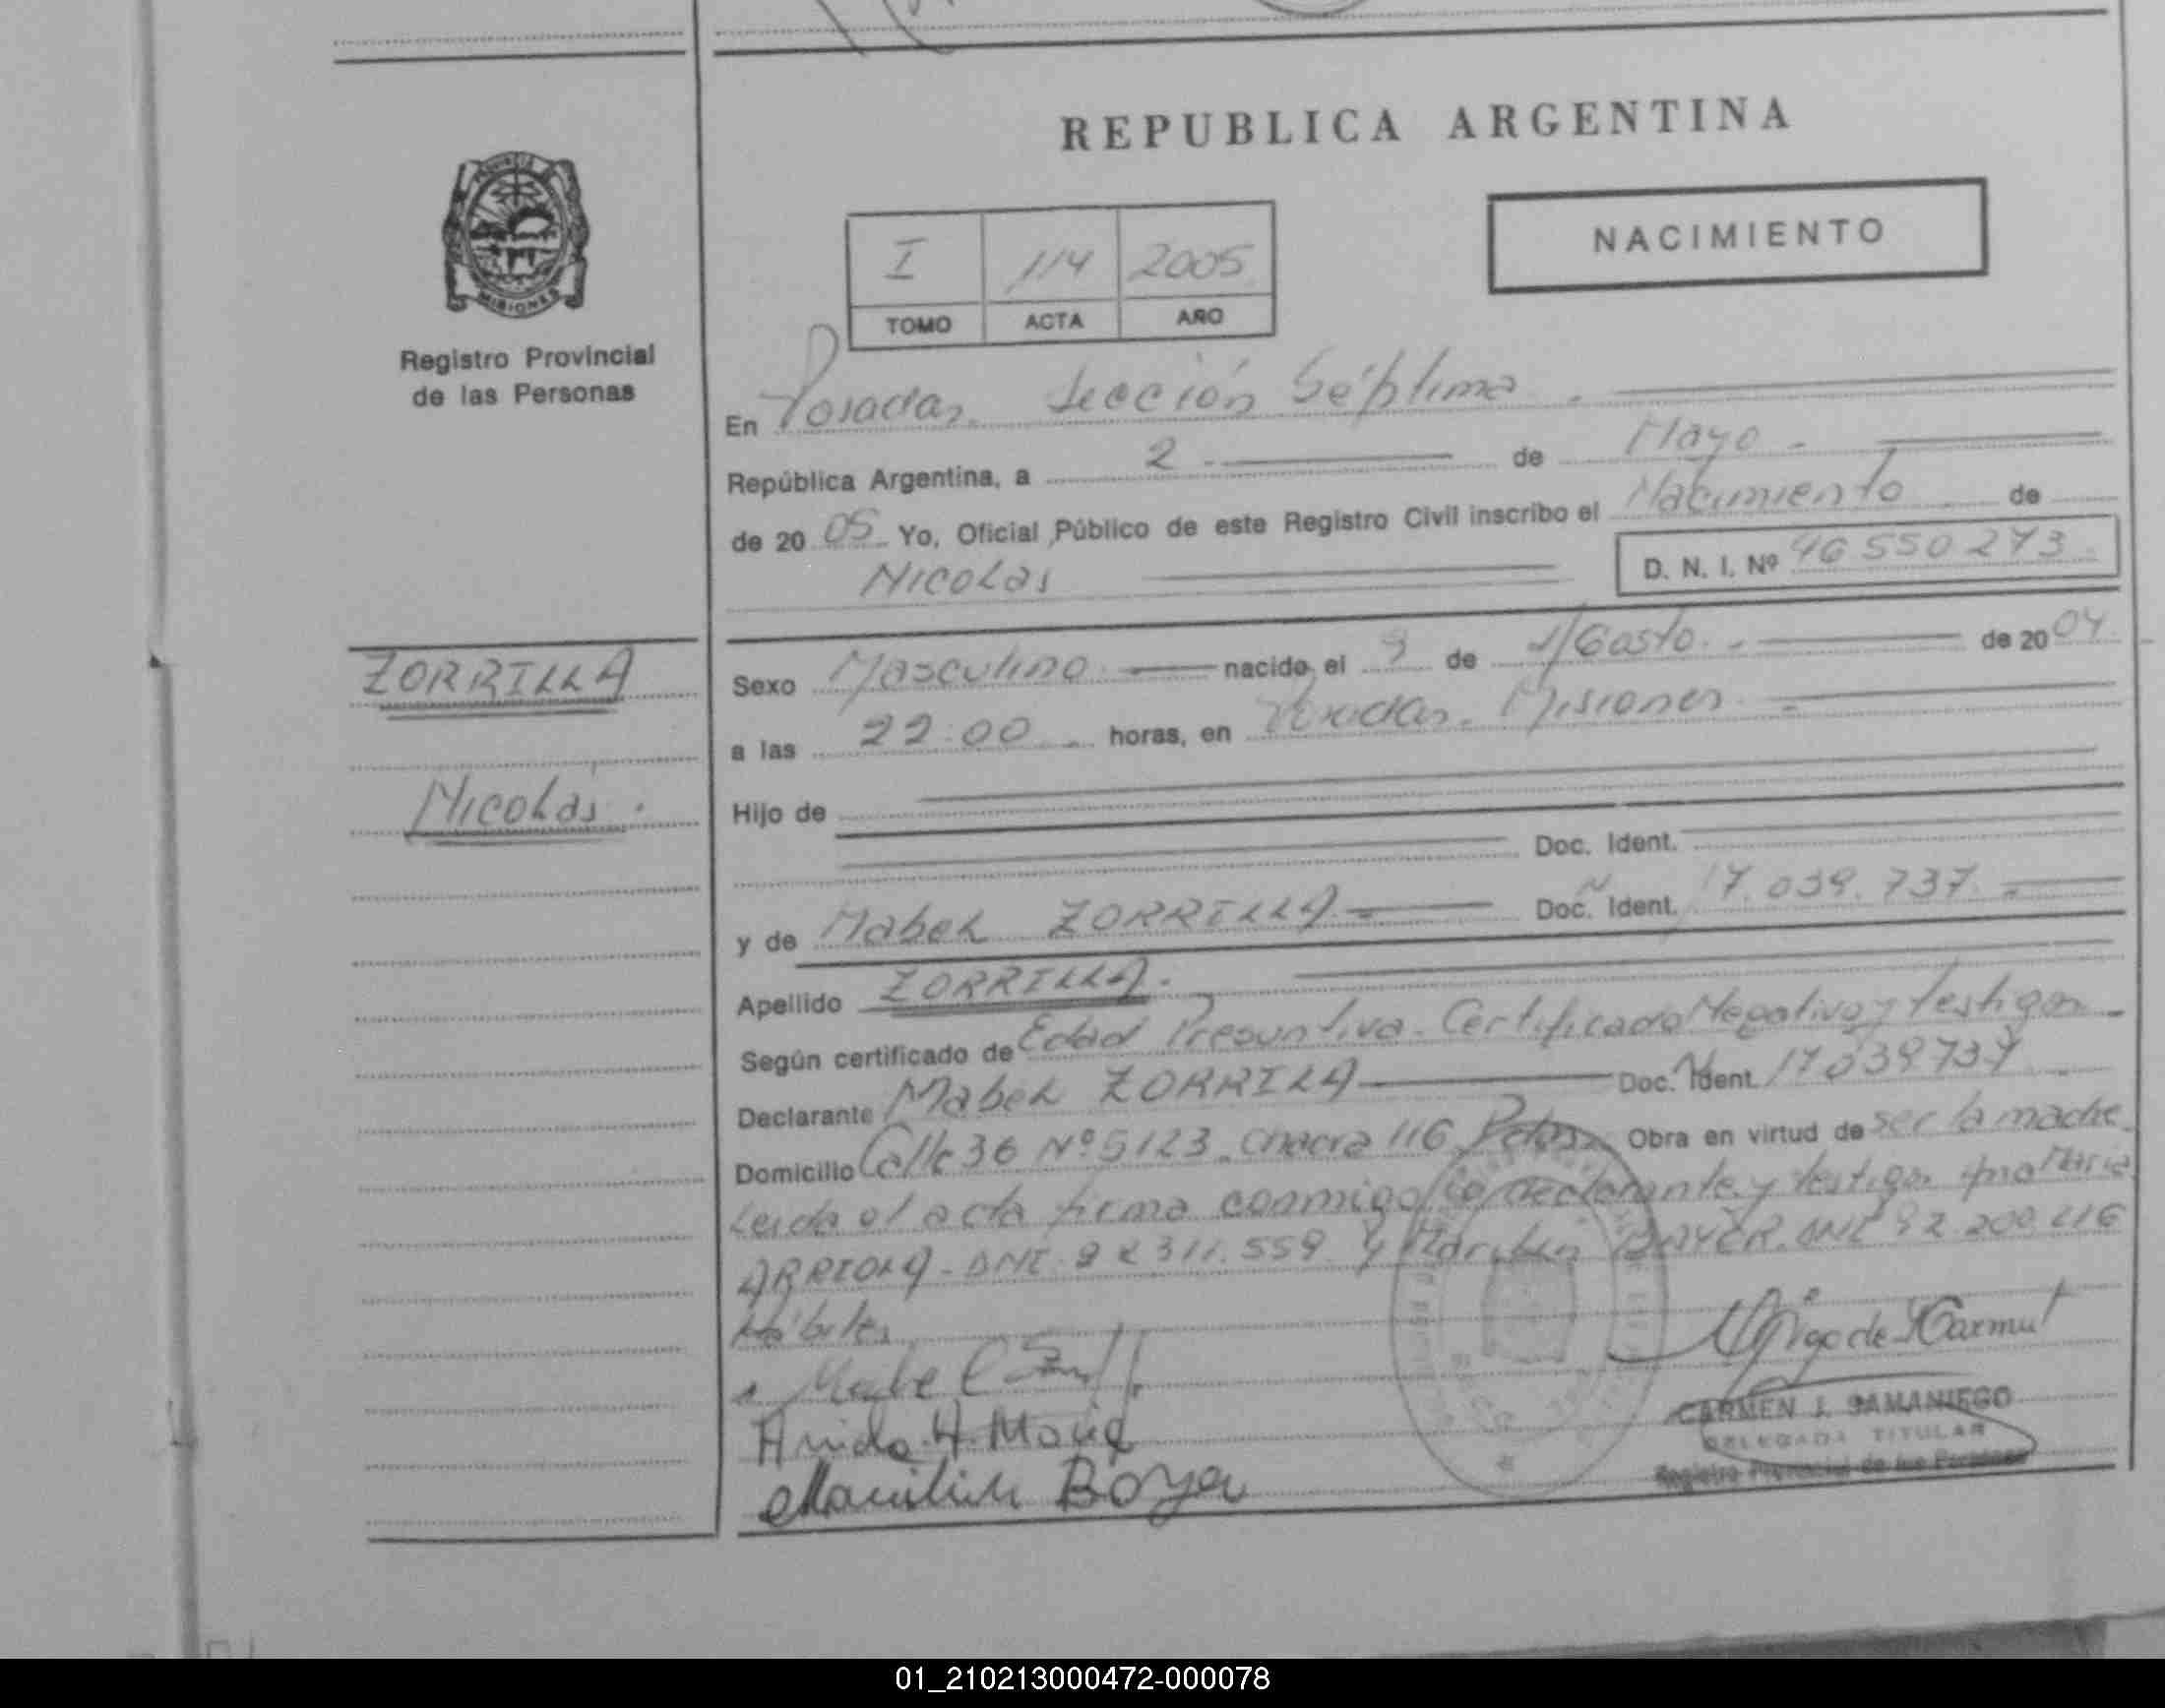 REPUBLICA ARGENTINA
NACIMIENTO
I 114 2005
TOMO ACTA AÑO
PROVINCIA
MISIONES
Registro Provincial
de las Personas
En Posadas. Sección Séptima.
República Argentina, a 2 - de Mayo -
de 20 05 Yo, Oficial Público de este Registro Civil inscribo el Nacimiento de
Nicolás
D. N. I. Nº 46 550 273
ZORRILLA
Nicolás.
Sexo Masculino. nacido el 9 de Agosto. - de 20 04.
a las 22:00 horas, en Posadas. Misiones. -
Hijo de
Doc. Ident.
y de Mabel ZORRILLA. - Doc. Ident. 17.039.737. -
Apellido ZORRILLA.
Según certificado de Edad Presuntiva. Certificado Negativo y testigos
Declarante Mabel ZORRILA Doc. Ident. 17039737
Domicilio Calle 36 Nº 5123. Chacra 116 Obra en virtud de ser la madre
Leida el acta firma conmigo la declarante y testigos Maria
DNI 92.200.216
hábiles
Mabel
Boya
CARMEN J. SAMANIEGO
DELEGADA TITULAR
Registro Provincial de las Personas
01_210213000472-000078